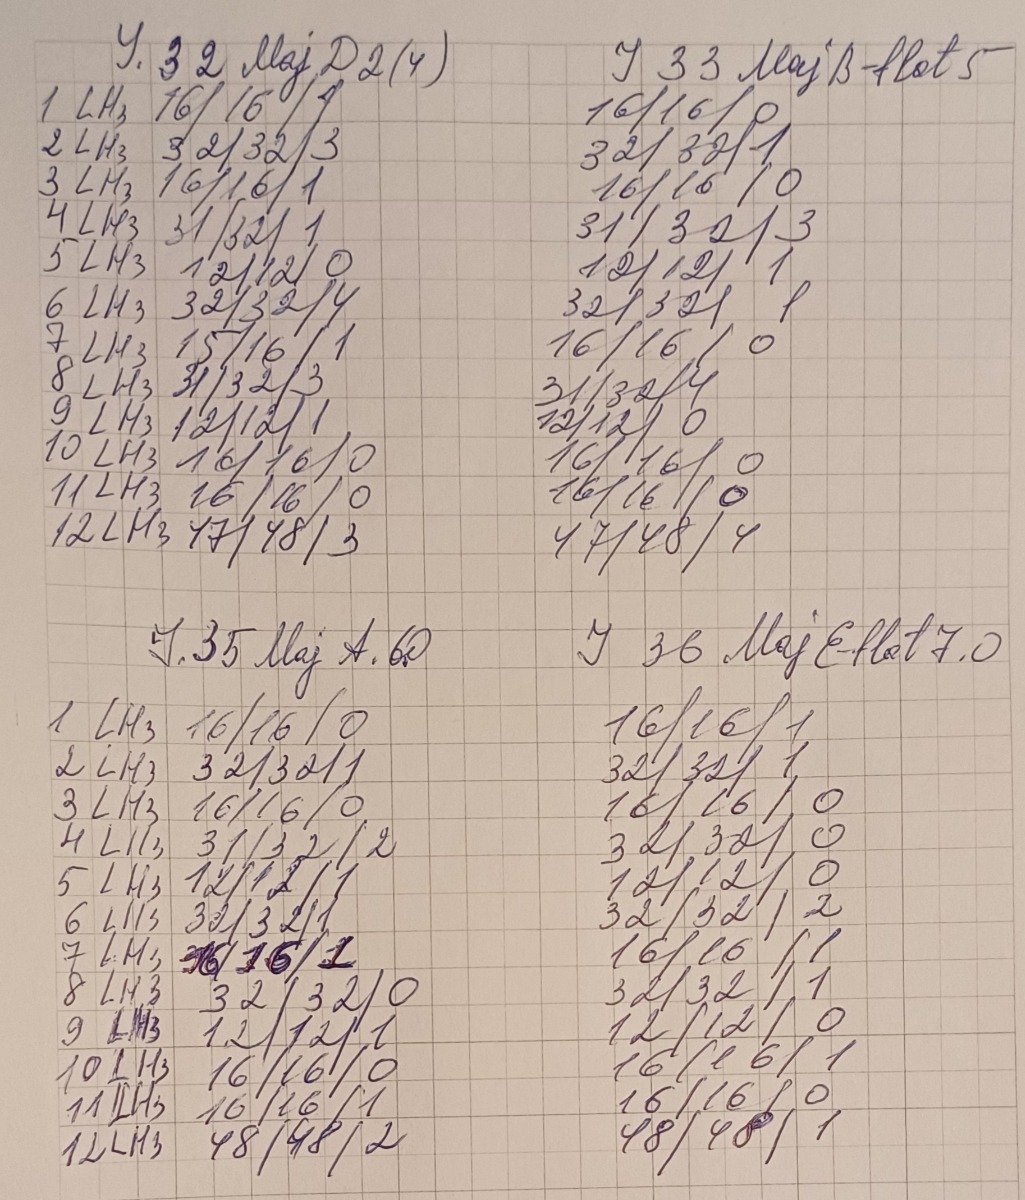 Y. 32 Maj D 2(4) Y 33 Maj B-flat 5
1 LH3 16/16/1 16/16/0
2 LH3 32/32/3 32/32/1
3 LH3 16/16/1 16/16/0
4 LH3 31/32/1 31/32/3
5 LH3 12/12/0 12/12/1
6 LH3 32/32/4 32/32/1
7 LH3 15/16/1 16/16/0
8 LH3 31/32/3 31/32/4
9 LH3 12/12/1 12/12/0
10 LH3 16/16/0 16/16/0
11 LH3 16/16/0 16/16/0
12 LH3 47/48/3 47/48/4
Y. 35 Maj A. 6.0 Y 36 Maj E-flat 7.0
1 LH3 16/16/0 16/16/1
2 LH3 32/32/1 32/32/1
3 LH3 16/16/0 16/16/0
4 LH3 31/32/2 32/32/0
5 LH3 12/12/1 12/12/0
6 LH3 32/32/1 32/32/2
7 LH3 16/16/1 16/16/1
8 LH3 32/32/0 32/32/1
9 LH3 12/12/1 12/12/0
10 LH3 16/16/0 16/16/1
11 LH3 16/16/1 16/16/0
12 LH3 48/48/2 48/48/1